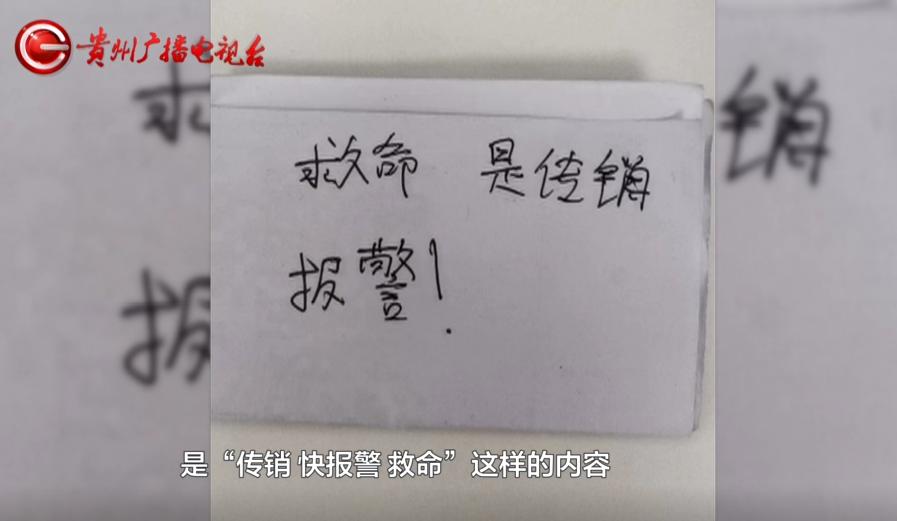 贵州广播电视台
救命 是传销
报警！
是“传销 快报警 救命”这样的内容